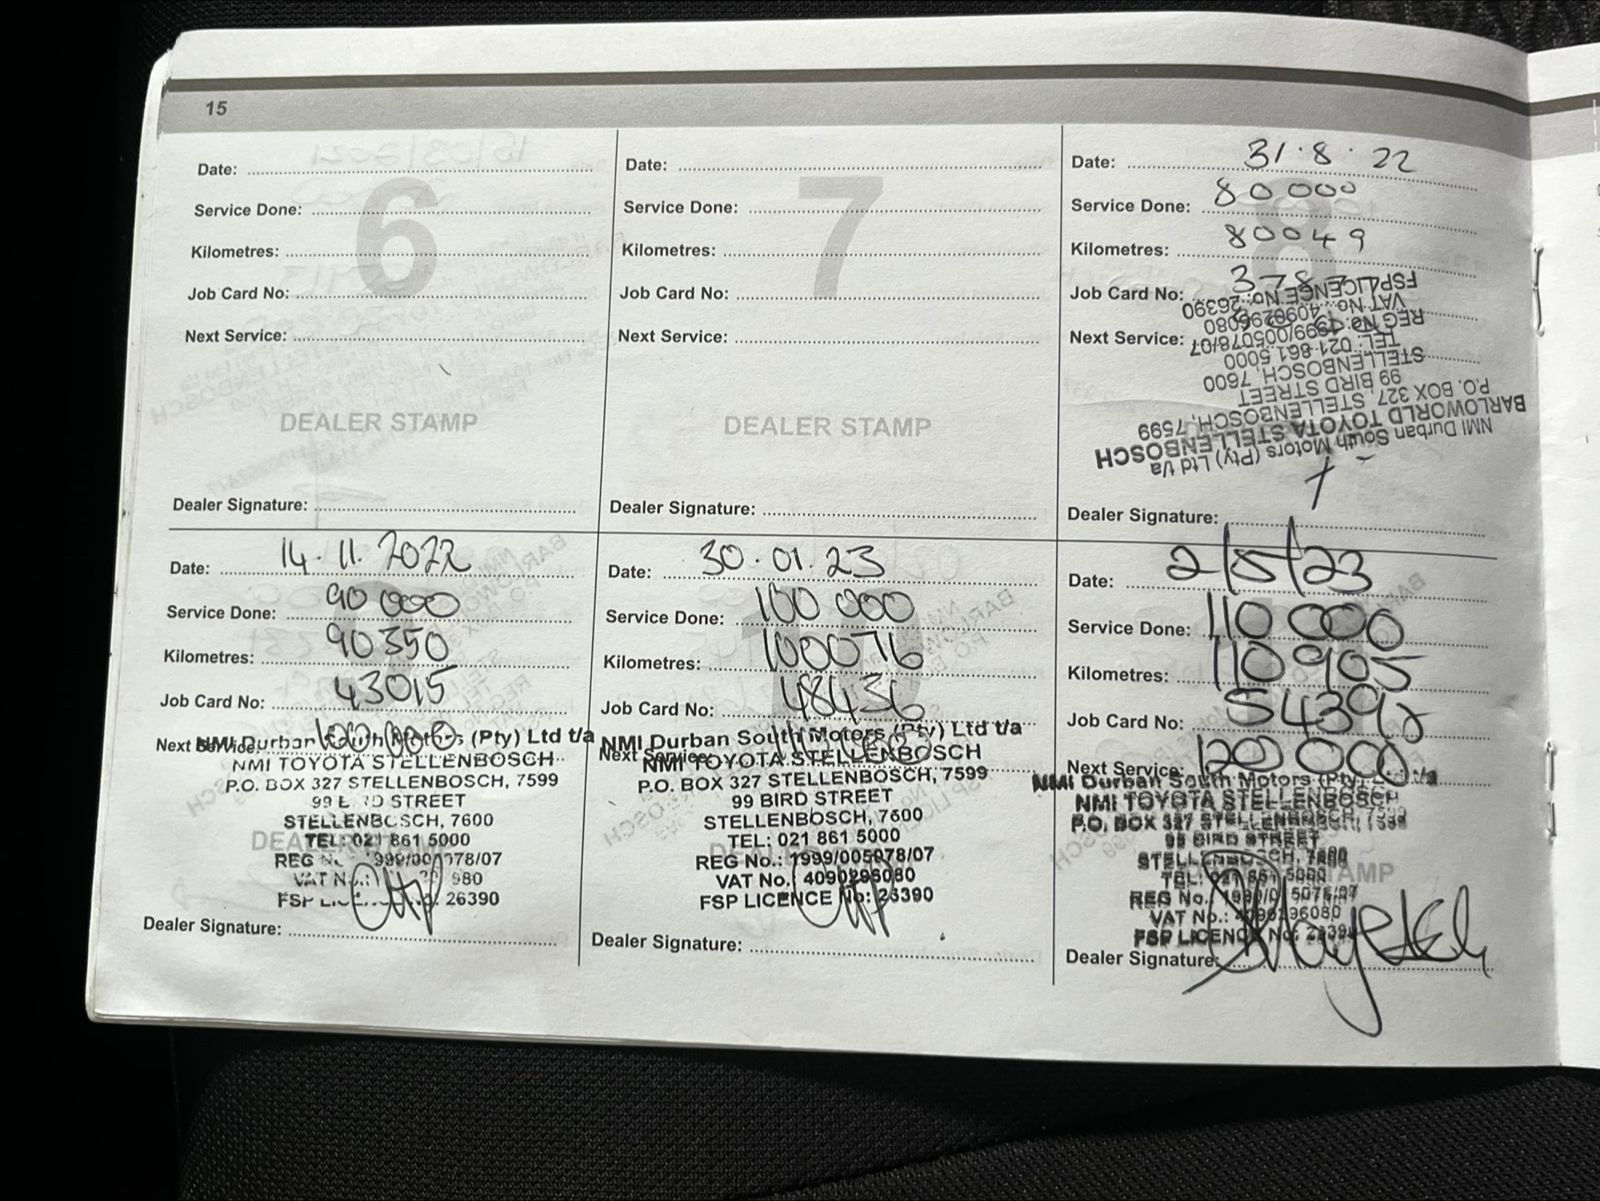 15
Date:
Service Done:
Kilometres:
Job Card No:
Next Service:
6
DEALER STAMP
Dealer Signature:
Date:
Service Done:
Kilometres:
Job Card No:
Next Service:
7
DEALER STAMP
Dealer Signature:
Date: 31.8.22
Service Done: 80 000
Kilometres: 80049
Job Card No:
Next Service:
NMI Durban South Motors (Pty) Ltd t/a
BARLOWORLD TOYOTA STELLENBOSCH
P.O. BOX 327, STELLENBOSCH, 7599
99 BIRD STREET
STELLENBOSCH, 7600
TEL: 021 861 5000
REG No: 1999/005078/07
VAT No.: 4090296080
FSP LICENCE No: 26390
Dealer Signature:
Date: 14.11.2022
Service Done: 90 000
Kilometres: 90350
Job Card No: 43015
Next Service: 100 000
NMI Durban South Motors (Pty) Ltd t/a
NMI TOYOTA STELLENBOSCH
P.O. BOX 327 STELLENBOSCH, 7599
99 STREET
STELLENBOSCH, 7600
TEL: 021 861 5000
REG
VAT
FSP 26390
DEALER
Dealer Signature:
Date: 30.01.23
Service Done: 100 000
Kilometres: 100076
Job Card No: 48436
Next Service:
NMI Durban South Motors (Pty) Ltd t/a
NMI TOYOTA STELLENBOSCH
P.O. BOX 327 STELLENBOSCH, 7599
99 BIRD STREET
STELLENBOSCH, 7600
TEL: 021 861 5000
REG No.: 1999/005078/07
VAT No. 4090296080
FSP LICENCE No: 26390
Dealer Signature:
Date: 2/5/23
Service Done: 110 000
Kilometres: 110 905
Job Card No:
Next Service: 120 000
NMI Durban South Motors (Pty) Ltd t/a
NMI TOYOTA STELLENBOSCH
P.O. BOX 327 STELLENBOSCH, 7599
99 BIRD STREET
STELLENBOSCH, 7600
TEL: 021 861 5000
REG No.: 1999/005078/07
VAT No.: 4090296080
FSP LICENCE No: 26390
Dealer Signature: